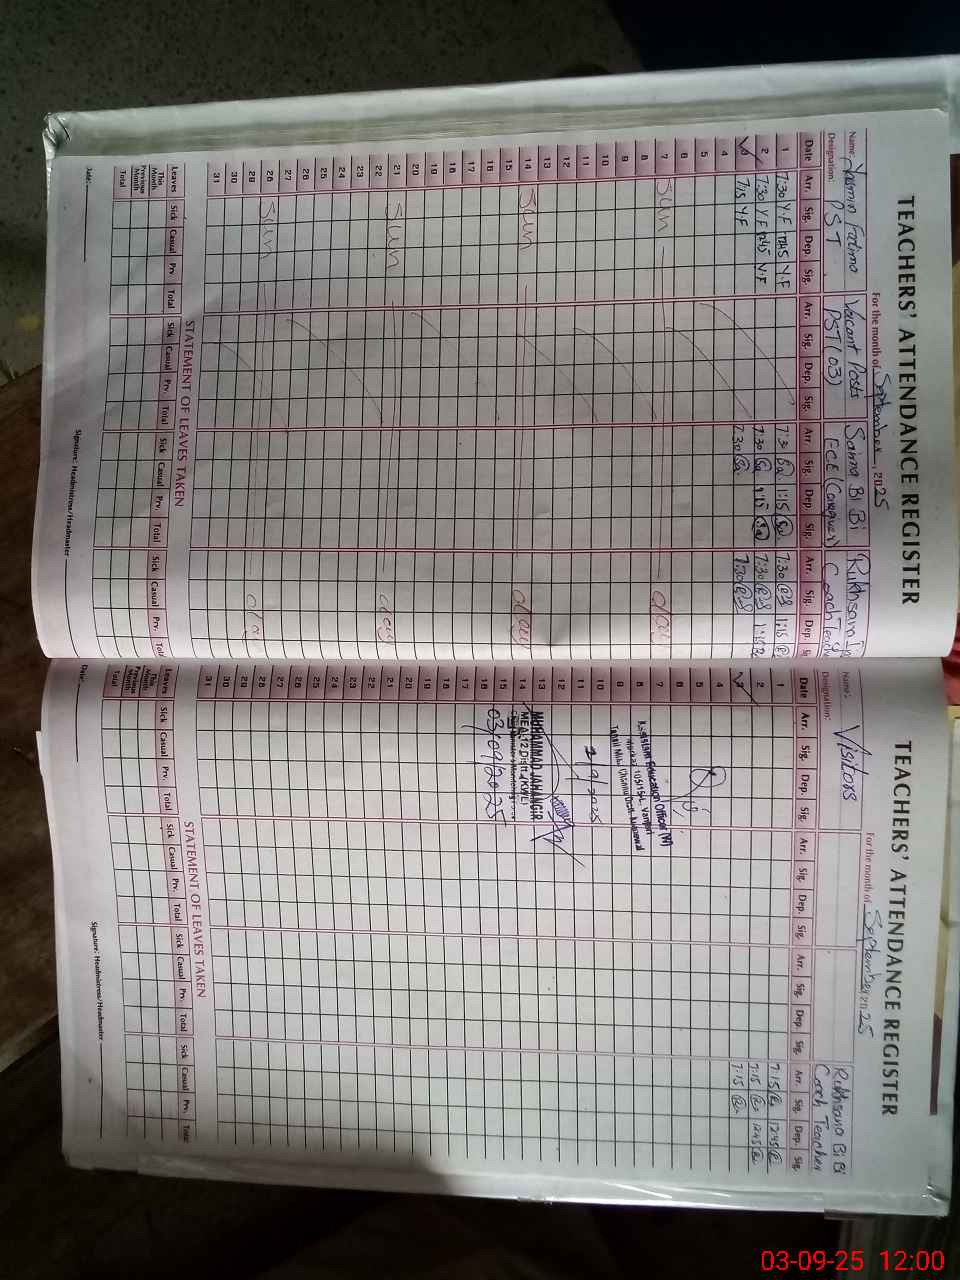 TEACHERS' ATTENDANCE REGISTER
For the month of September, 2025
Name Yasmin Fatima Vacant Posts Saima Bi Bi Rukhsana
Designation: PST PST (03) ECE Coach Teacher
Date Arr. Sig. Dep. Sig. Arr. Sig. Dep. Sig. Arr. Sig. Dep. Sig. Arr. Sig. Dep.
1 7:30 Y.F 12:45 Y.F 7:30 Sa 1:15 Sa 7:30 1:15
2 7:30 Y.F 12:45 Y.F 7:30 Sa 1:15 Sa 7:30 1:15
3 7:15 Y.F 7:30 Sa 7:30
4
5
6
7 Sun day
8
9
10
11
12
13
14 Sun day
15
16
17
18
19
20
21 Sun day
22
23
24
25
26
27
28 Sun day
29
30
31
STATEMENT OF LEAVES TAKEN
Leaves Sick Casual Prv. Total Sick Casual Prv. Total Sick Casual Prv. Total Sick Casual Prv.
This Month
Previous Month
Total
Date:
Signature: Headmistress/Headmaster
TEACHERS' ATTENDANCE REGISTER
For the month of September 2025
Name: Visitors Rukhsana Bi Bi
Designation: Coach Teacher
Date Arr. Sig. Dep. Sig. Arr. Sig. Dep. Sig. Arr. Sig. Dep. Sig. Arr. Sig. Dep. Sig.
1 7:15 12:45
2 7:15 12:45
3 7:15
4
5
6
7
8
9
10
11
12
13
14
15
16
17
18
19
20
21
22
23
24
25
26
27
28
29
30
31
Assistant Education Officer (W)
Markaz 105/15-L
2/9/2025
MUHAMMAD JAHANGIR
03/09/2025
STATEMENT OF LEAVES TAKEN
Leaves Sick Casual Prv. Total Sick Casual Prv. Total Sick Casual Prv. Total Sick Casual Prv. Total
This Month
Previous Month
Total
Date:
Signature: Headmistress/Headmaster
03-09-25 12:00